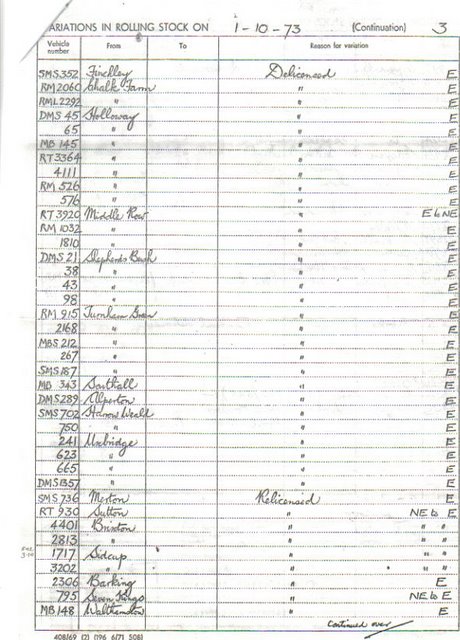 VARIATIONS IN ROLLING STOCK ON 1-10-73 (Continuation) 3
Vehicle number From To Reason for variation
SMS 352 Finchley Delicensed E
RM 2060 Chalk Farm " E
RML 2292 " " E
DMS 45 Holloway " E
65 " " E
MB 145 " " E
RT 3364 " " E
4111 " " E
RM 526 " " E
576 " " E
RT 3920 Middle Row " E to NE
RM 1032 " " E
1810 " " E
DMS 21 Shepherds Bush " E
38 " " E
43 " " E
98 " " E
RM 915 Turnham Green " E
2168 " " E
MBS 212 " " E
267 " " E
SMS 187 " " E
MB 343 Southall " E
DMS 289 Alperton " E
SMS 702 Harrow Weald " E
750 " " E
241 Uxbridge " E
623 " " E
665 " " E
DMS 1357 " " E
SMS 736 Merton Relicensed E
RT 930 Sutton " NE to E
4401 Brixton " " "
2813 " " " "
1717 Sidcup " " "
3202 " " " "
2306 Barking " E
795 Seven Kings " NE to E
MB 148 Walthamstow " E
continued over
408/69 (2) (196 6/71 508)